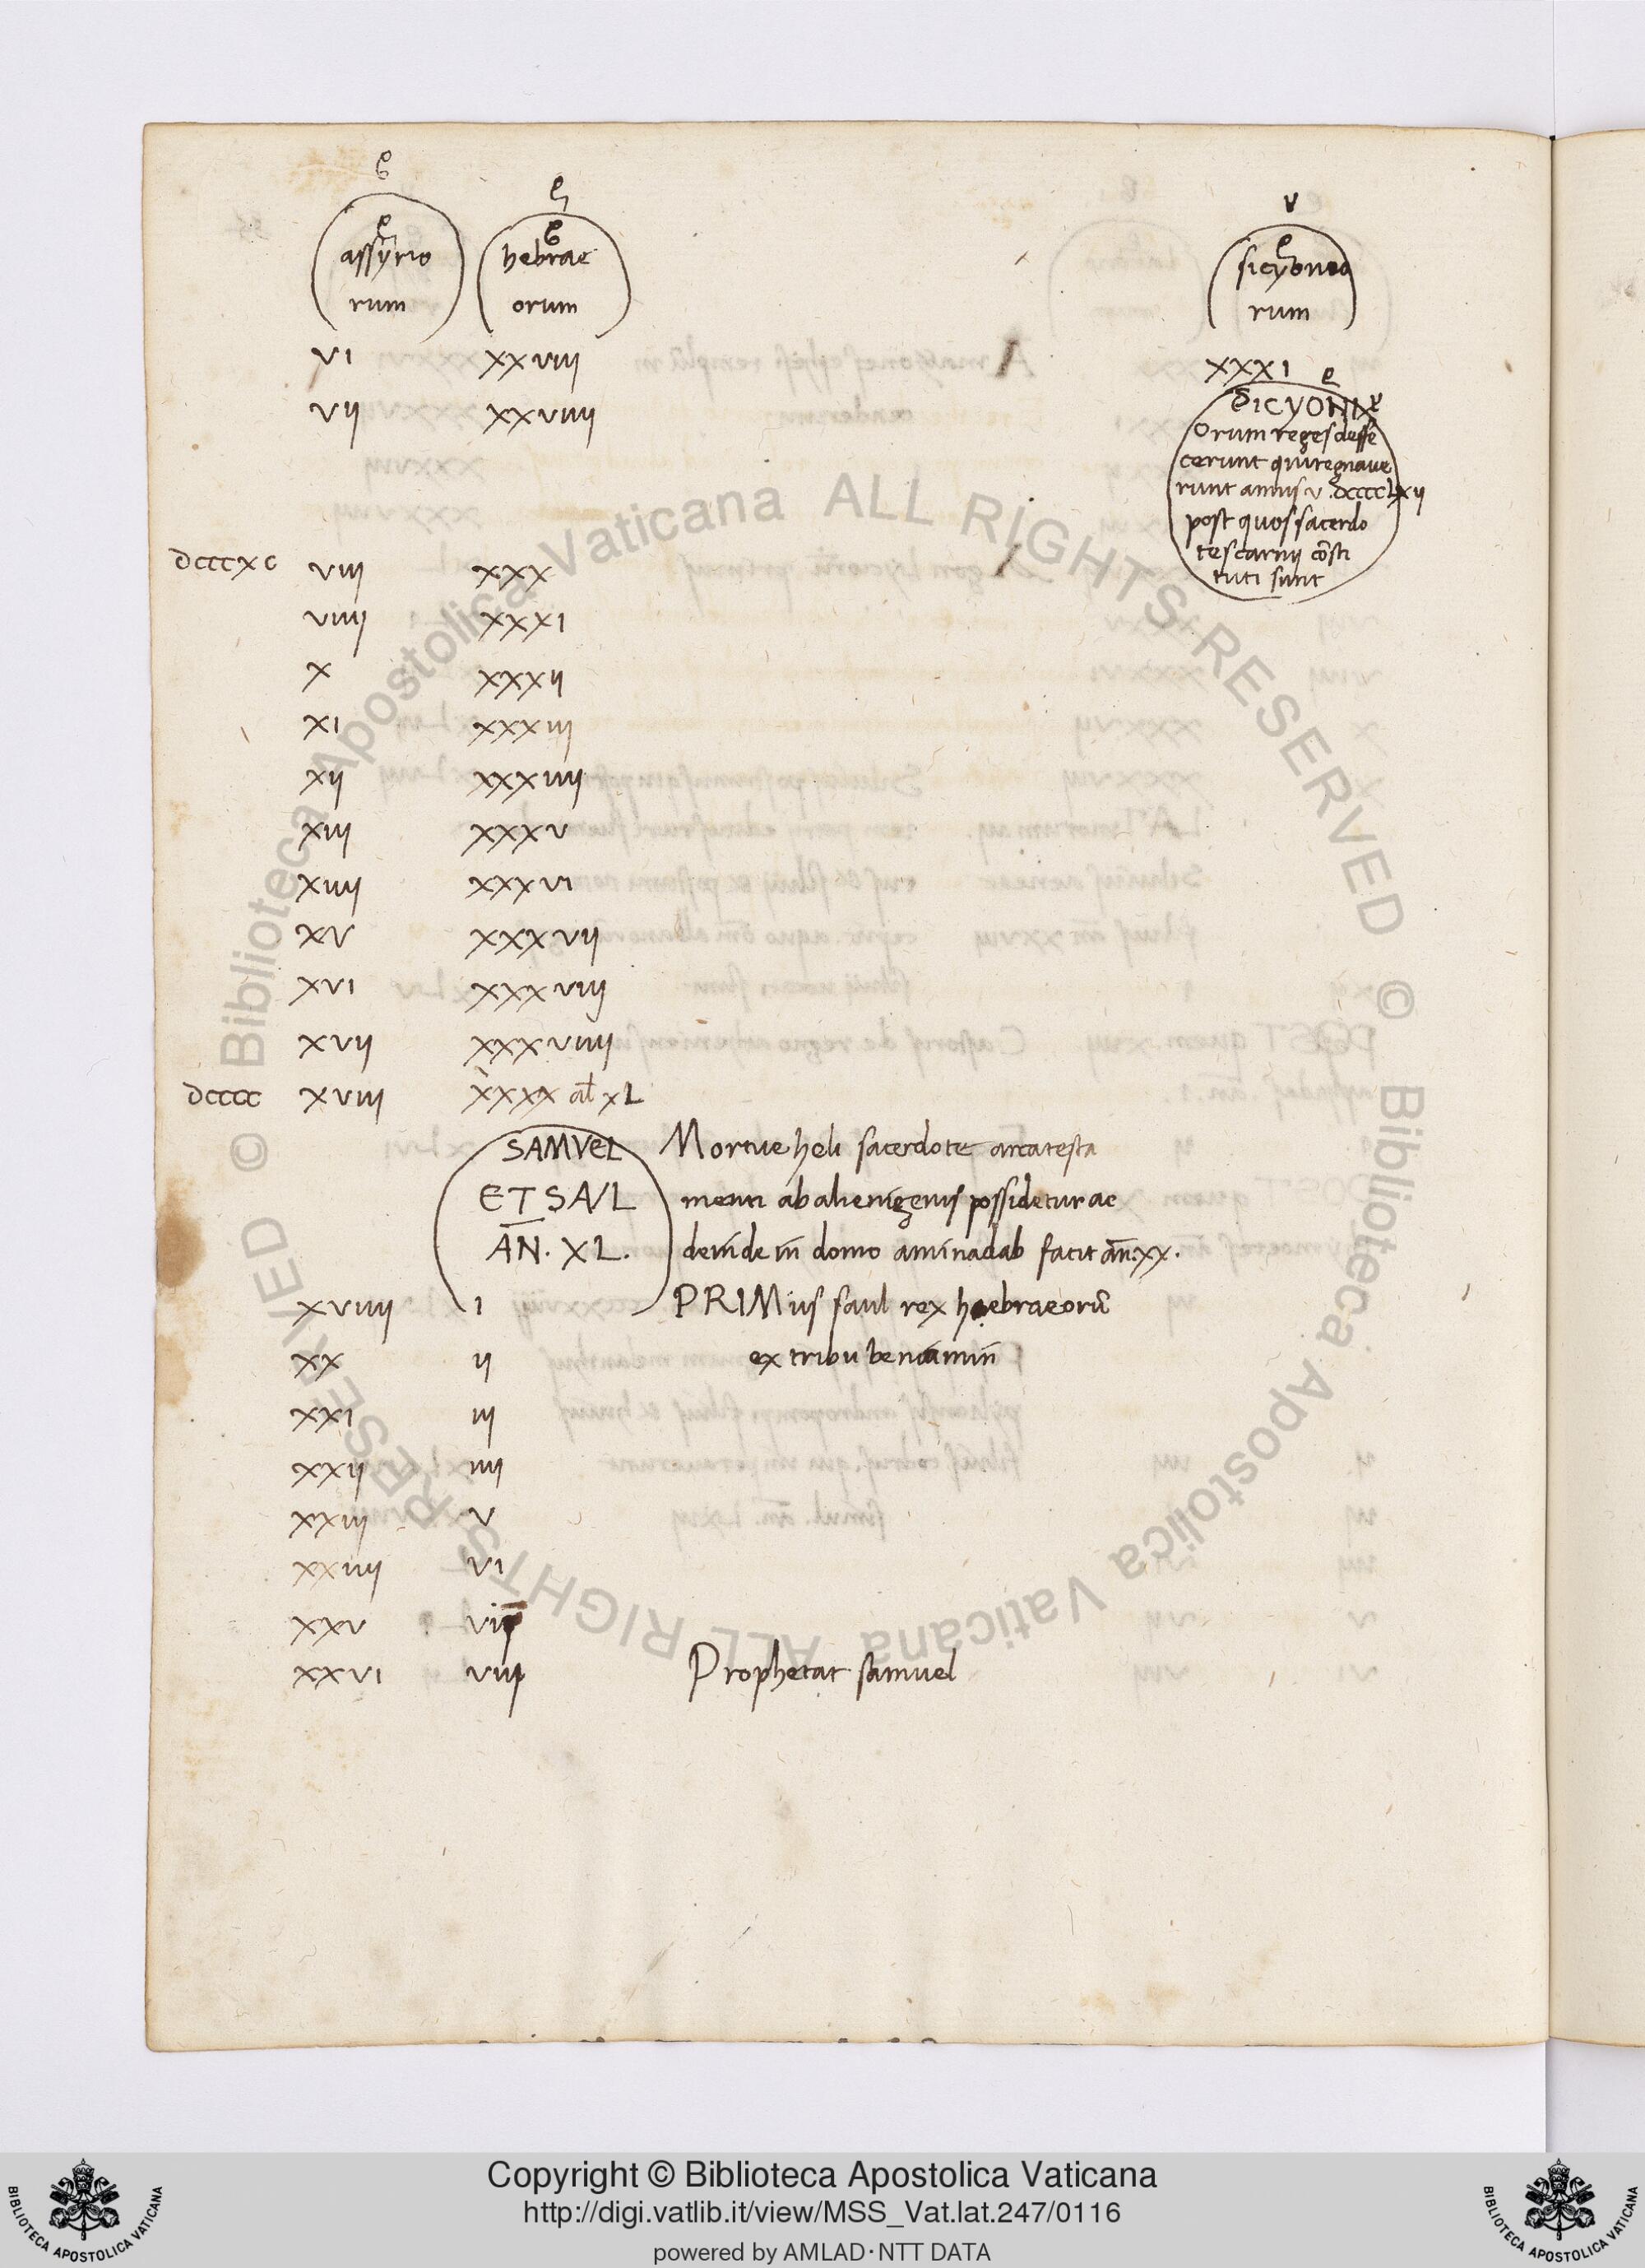 assyrio hebrae sicyonio
rum orum rum
vi xxviii xxxi
vii xxviiii SICYONI
Orum reges deffe
cerunt qui regnaue
runt annis v. dcccclxii
post quos sacerdo
tes carnii cōsti
tuti sunt
dcccxc viii xxx
viiii xxxi
x xxxii
xi xxxiii
xii xxxiiii
xiii xxxv
xiiii xxxvi
xv xxxvii
xvi xxxviii
xvii xxxviiii
dcccc xviii xxxx al xL
SAMVEL Mortue heli sacerdote arca testa
ET SAVL menti ab alienigenis possidetur ac
AN. XL. deinde in domo aminadab facit an̄. xx.
xviiii i PRIMus saul rex haebraeorū
xx ii ex tribu beniamin
xxi iii
xxii iiii
xxiii v
xxiiii vi
xxv vii
xxvi viii Prophetat samuel
© Biblioteca Apostolica Vaticana ALL RIGHTS RESERVED © Biblioteca Apostolica Vaticana ALL RIGHTS RESERVED
Copyright © Biblioteca Apostolica Vaticana
http://digi.vatlib.it/view/MSS_Vat.lat.247/0116
powered by AMLAD·NTT DATA
BIBLIOTECA APOSTOLICA VATICANA
BIBLIOTECA APOSTOLICA VATICANA